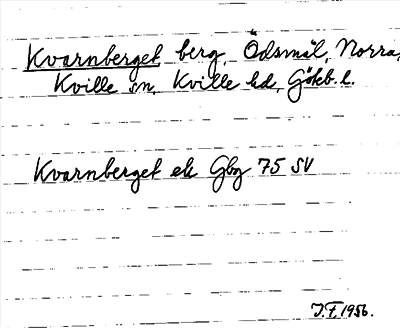 Kvarnberget berg, Ödsmål, Norra,
Kville sn, Kville hd, Göteb. l.
Kvarnberget ek Gbg 75 SV
J.F. 1956.